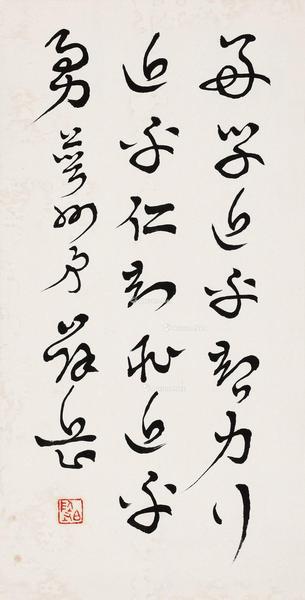 好学近乎智力行
近乎仁知耻近乎
勇 薛岳